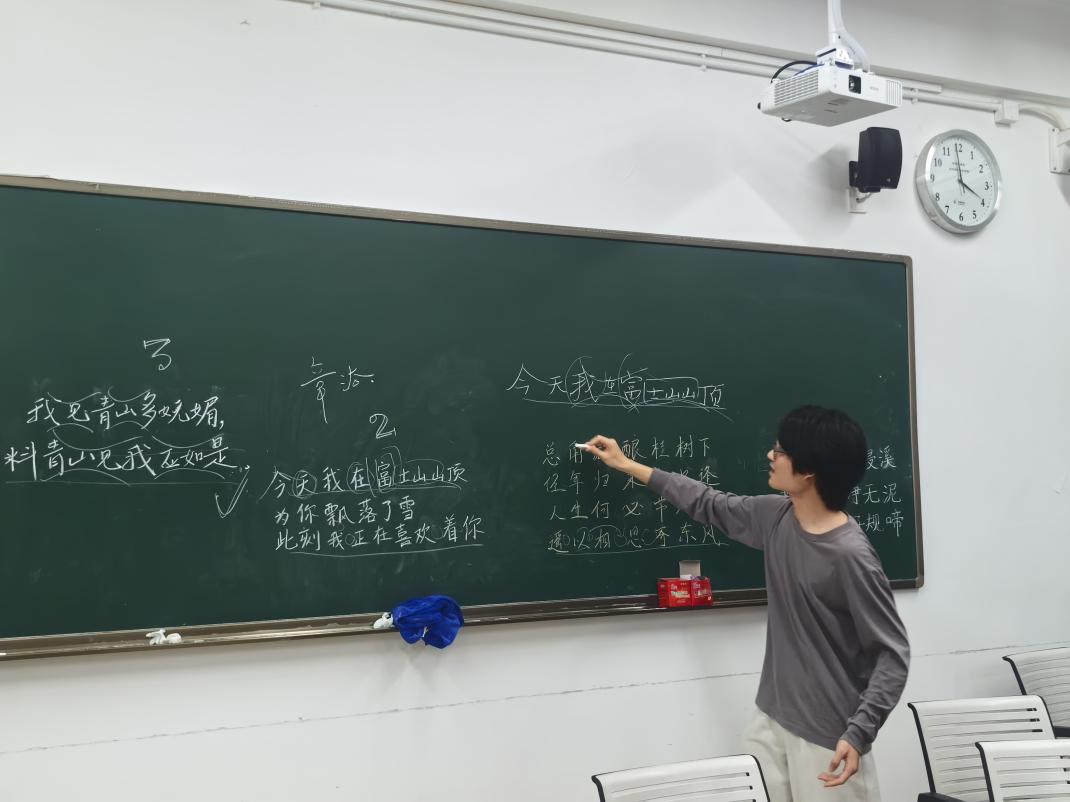 3
我见青山多妩媚,
料青山见我应如是.
章法.
2
今天我在富士山山顶
为你飘落了雪
此刻我正在喜欢着你
今天我在富士山山顶
总用 酿桂树下
年归 逢
人生何必
遥以相思 东风
浸溪
净无泥
规啼
12
1
2
3
4
5
6
7
8
9
10
11